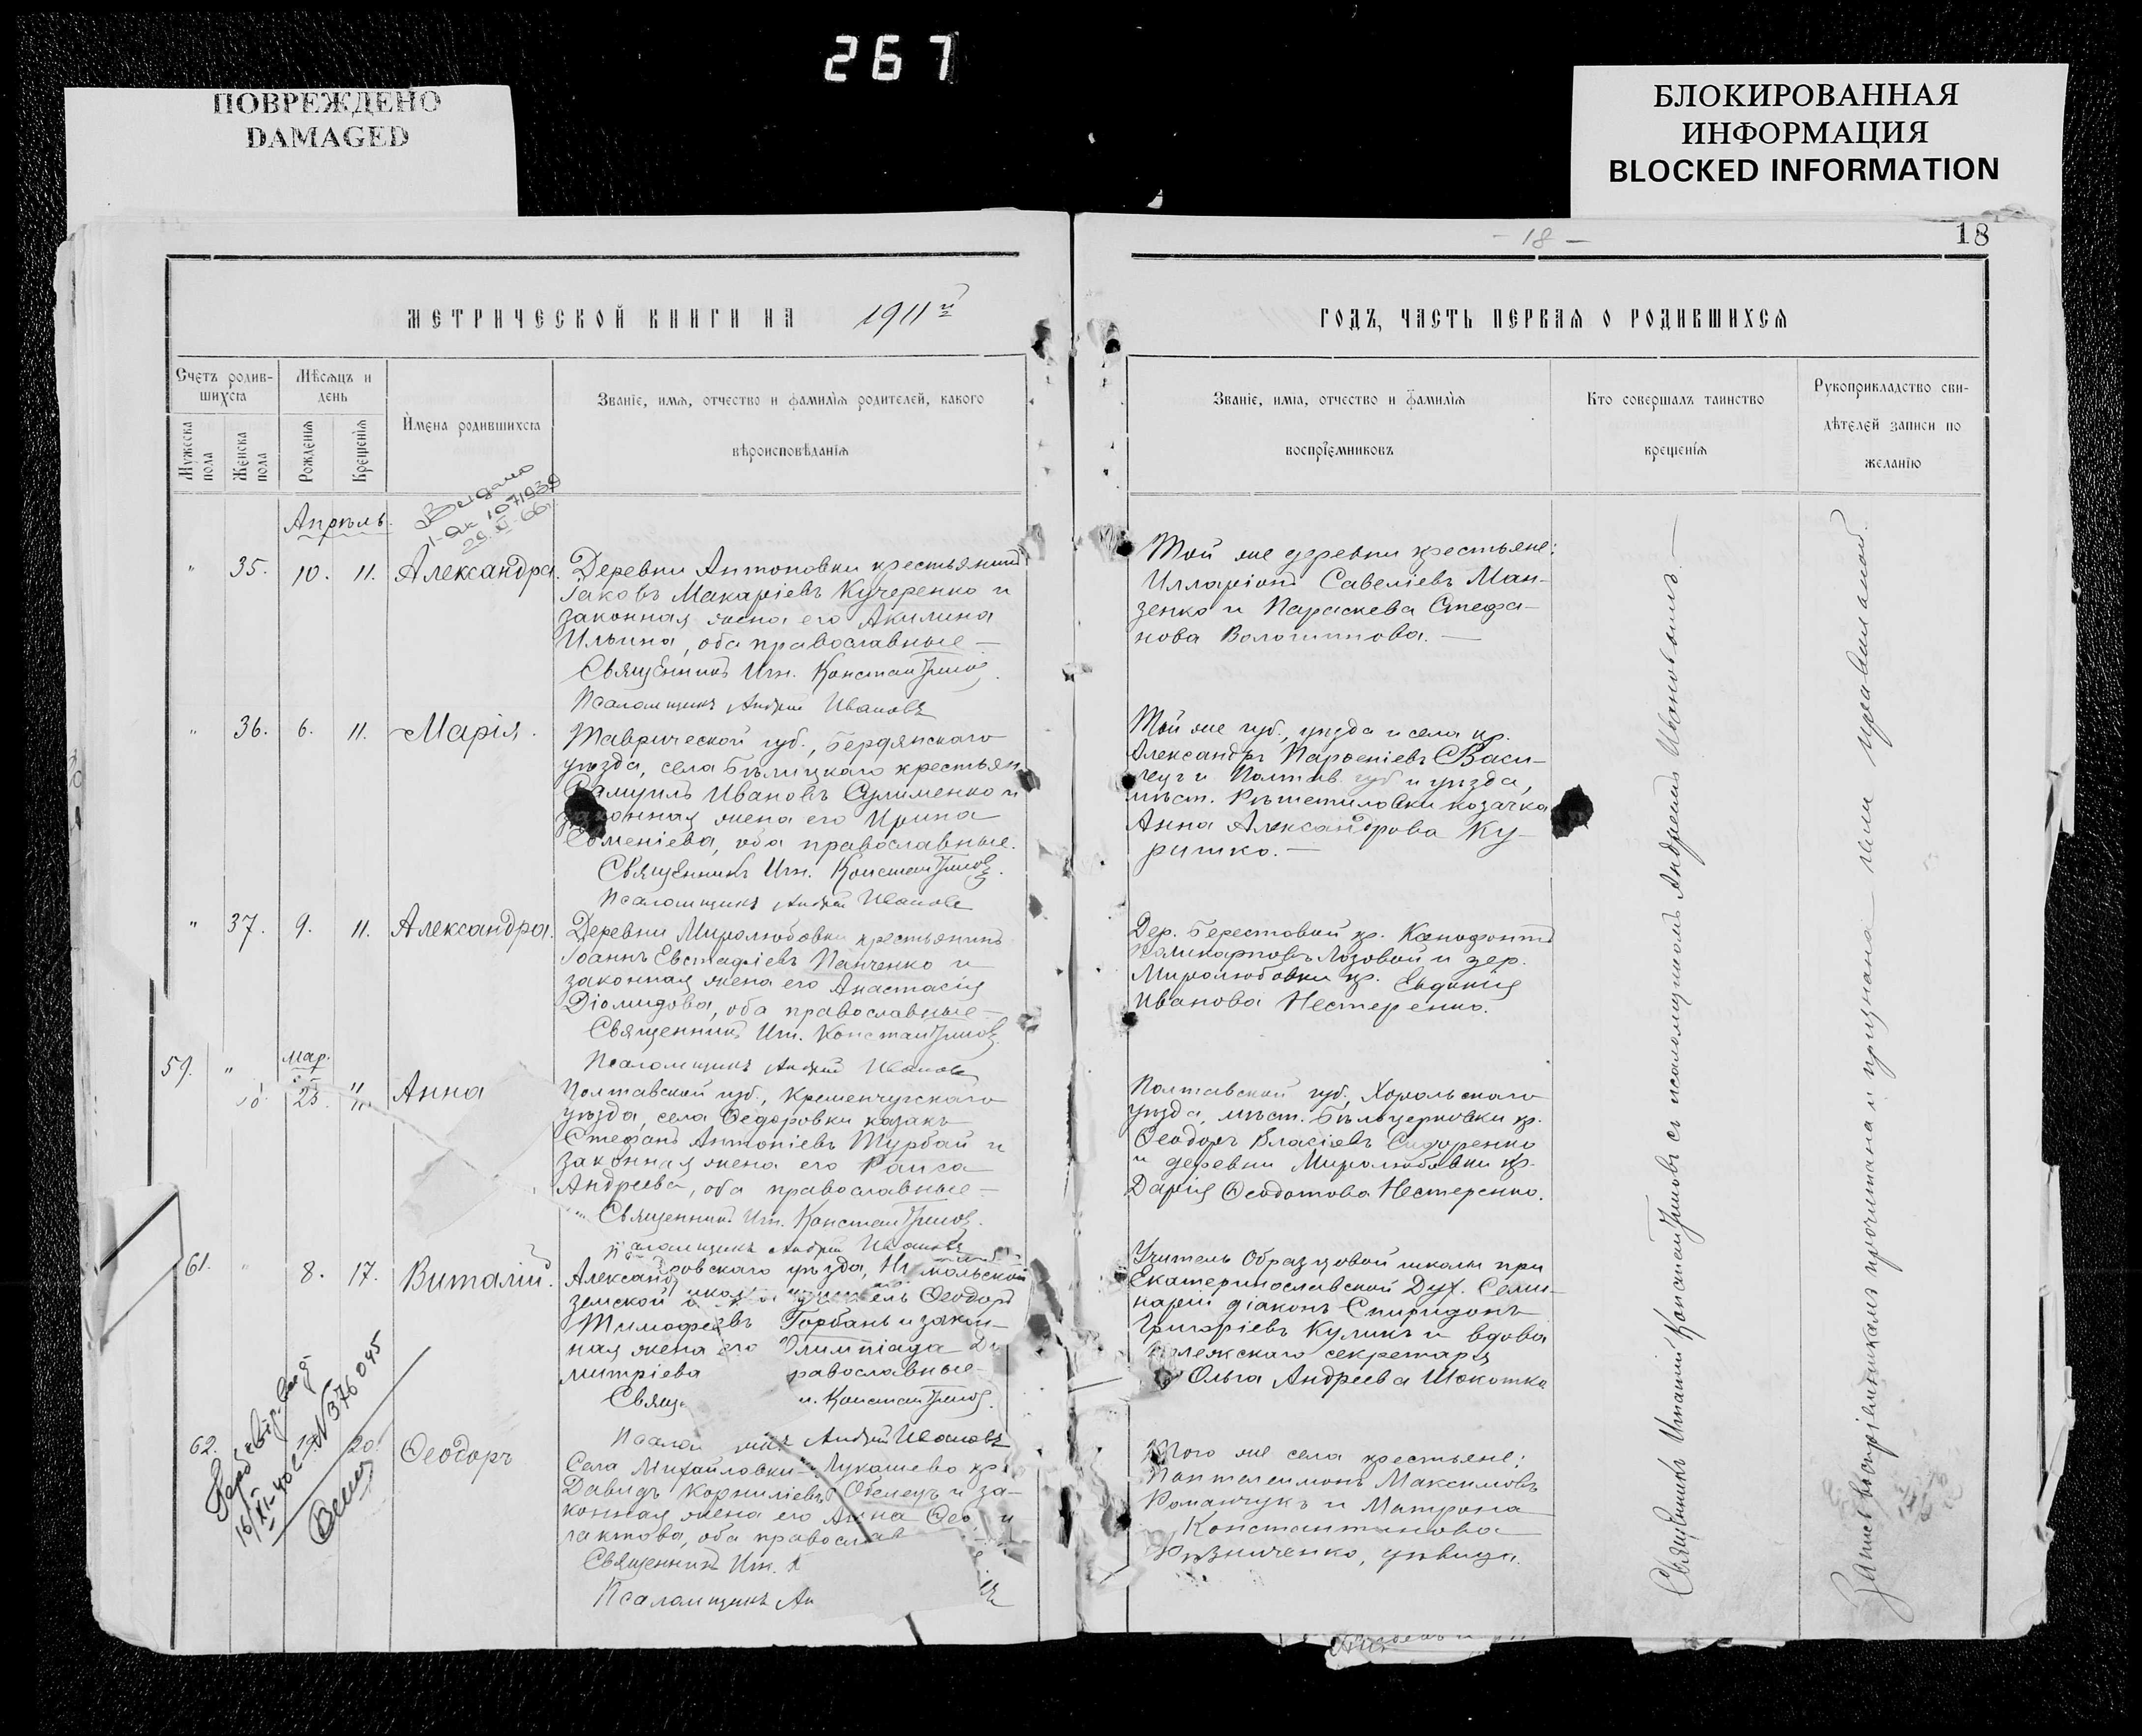 267
ПОВРЕЖДЕНО
DAMAGED
БЛОКИРОВАННАЯ
ИНФОРМАЦИЯ
BLOCKED INFORMATION
- 18 -
18
МЕТРИЧЕСКОЙ КНИГИ НА 1911й
Счетъ родив-
шихся
Мѣсяцъ и
день
Имена родившихся
Званіе, имя, отчество и фамилія родителей, какого
вѣроисповѣданія
Мужеска
пола
Женска
пола
Рожденія
Крещенія
29. XI. 66
Апрѣль.
" 35. 10. 11. Александра.
Деревни Антоновки крестьянинъ
Іаковъ Макаріевъ Кучеренко и
законная жена его Акилина
Ильина, оба православные –
Священникъ Игн. Константиновъ
Псаломщикъ Андрей Ивановъ
" 36. 6. 11. Марія.
Таврической губ., Бердянскаго
уѣзда, села Бѣлицкаго крестьян
Самуилъ Ивановъ Сулименко и
законная жена его Ирина
Евменіева, оба православные.
Священникъ Игн. Константиновъ.
Псаломщикъ Андрей Ивановъ
" 37. 9. 11. Александра.
Деревни Миролюбовки крестьянинъ
Іоаннъ Евстафіевъ Панченко и
законная жена его Анастасія
Діомидова, оба православные –
Священникъ Игн. Константиновъ.
Псаломщикъ Андрей Ивановъ
59. " Мар.
23. 11. Анна
Полтавской губ., Кременчугскаго
уѣзда, села Ѳедоровки казакъ
Стефанъ Антоніевъ Турбай и
законная жена его Раиса
Андреева, оба православные –
Священникъ Игн. Константиновъ.
Псаломщикъ Андрей Ивановъ
61. " 8. 17. Виталій.
Александровскаго уѣзда,
земской учитель Ѳеодоръ
Тимофеевъ Горбань и закон-
ная жена его Олимпіада Ди
митріева равославные –
Свящ н. Константиновъ.
Псалом щикъ Андрей Ивановъ
62. 19. 20. Ѳеодоръ
Села Михайловки-Лукашево кр.
Давидъ Корниліевъ и за-
конная жена его Анна
лактова, оба православ
Священникъ Игн. К
Псаломщикъ Ан
16/XI-40 г. N 376045
ГОДЪ, ЧАСТЬ ПЕРВАЯ О РОДИВШИХСЯ
Званіе, имя, отчество и фамилія
воспріемниковъ
Кто совершалъ таинство
крещенія
Рукоприкладство сви-
дѣтелей записи по
желанію
Той же деревни крестьяне:
Илларіонъ Савеліевъ Ман-
зенко и Параскева Стефа-
нова Волошинова. –
Той же губ., уѣзда и села кр.
Александръ Парѳеніевъ Васи-
лецъ и Полтав. губ и уѣзда,
мѣст. Рѣшетиловки козачка
Анна Александрова Ку-
ришко. –
Дер. Берестовой кр. Ксенофонтъ
Поликарповъ Лозовой и дер.
Миролюбовки кр. Евдокія
Иванова Нестеренко.
Полтавской губ., Хорольскаго
уѣзда, мѣст. Бѣлоцерковки кр.
Ѳеодоръ Власіевъ Сидоренко
и деревни Миролюбовки кр.
Дарія Ѳеодотова Нестеренко.
Учитель Образцовой школы при
Екатеринославской Дух. Семи-
наріи діаконъ Спиридонъ
Григоріевъ Куликъ и вдова
коллежскаго секретаря
Ольга Андреева Шокотко
Того же села крестьяне:
Пантелеимонъ Максимовъ
Романчукъ и Матрона
Константинова
Кузниченко, дѣвица.
Священникъ Игнатій Константиновъ съ псаломщикомъ Андреемъ Ивановымъ. –
Запись воспріемникамъ прочитана и признана ими правильной.